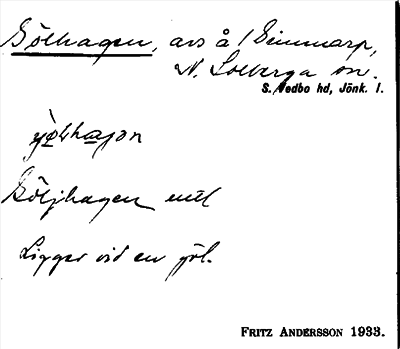 Gölhagen, avs å Gimmarp,
N. Solberga sn.
S. Vedbo hd, Jönk. l.
Göljhagen uttl
Ligger vid en göl.
FRITZ ANDERSSON 1933.